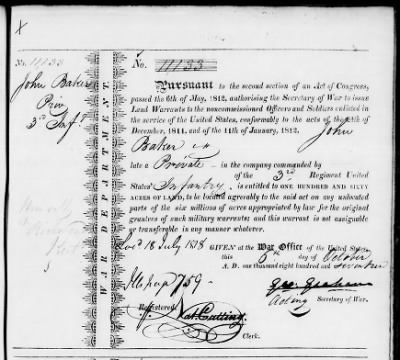 No. 11133
John Baker
Priv
3d Inft
WAR DEPARTMENT.
No. 11133
Pursuant to the second section of an Act of Congress,
passed the 6th of May, 1812, authorising the Secretary of War to issue
Land Warrants to the noncommissioned Officers and Soldiers enlisted in
the service of the United States, conformably to the acts of the
December, 1811, and of the 11th of January, 1812, John
Baker
late a Private in the company commanded by
of the 3rd Regiment United
States' Infantry, is entitled to ONE HUNDRED AND SIXTY
ACRES OF LAND, to be located agreeably to the said act on any unlocated
part of the six millions of acres appropriated by law for the original
grantees of such military warrants; and this warrant is not assignable
or transferable in any manner whatever.
Loc'd 18 July 1818
GIVEN at the War Office of the United States,
this day of October
A. D. one thousand eight hundred and seventeen
759
Geo. Graham
Acting Secretary of War.
Registered
Nat. Cutting
Clerk.